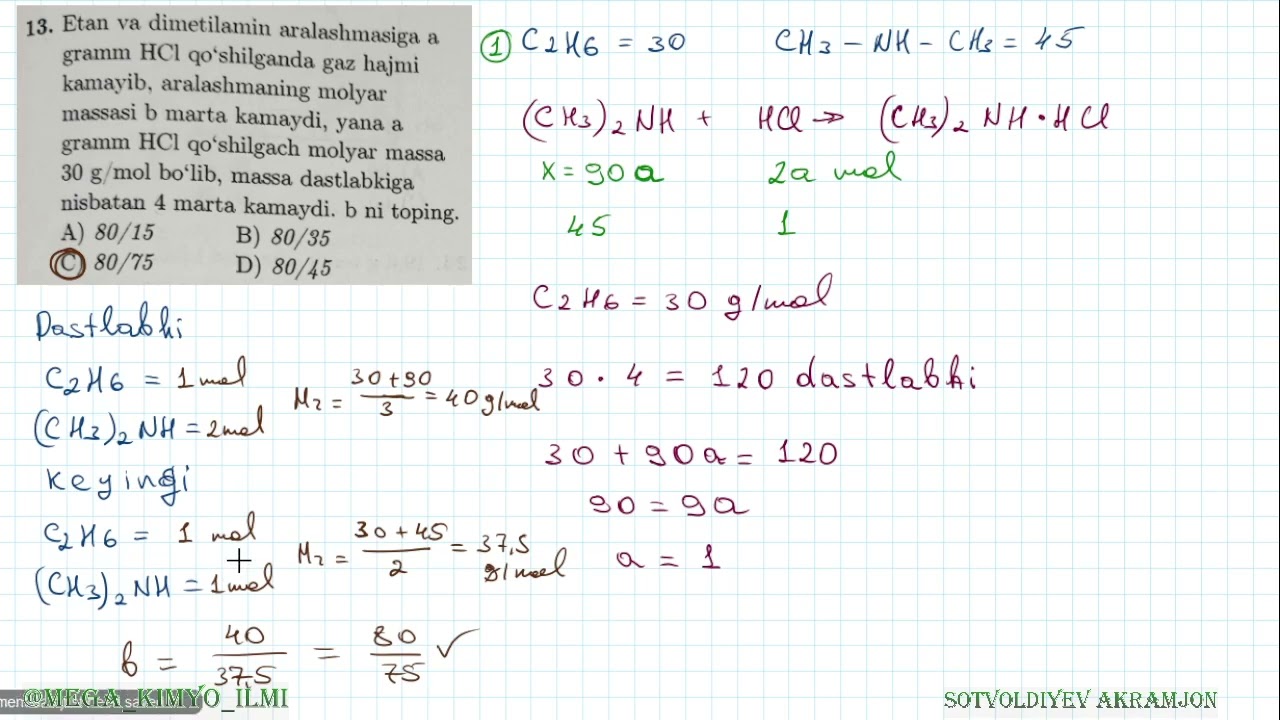 13. Etan va dimetilamin aralashmasiga a
gramm HCl qo‘shilganda gaz hajmi
kamayib, aralashmaning molyar
massasi b marta kamaydi, yana a
gramm HCl qo‘shilgach molyar massa
30 g/mol bo‘lib, massa dastlabkiga
nisbatan 4 marta kamaydi. b ni toping.
A) 80/15 B) 80/35
C) 80/75 D) 80/45
① C2H6 = 30 CH3 - NH - CH3 = 45
(CH3)2 NH + HCl → (CH3)2 NH · HCl
x = 90a 2a mol
45 1
C2H6 = 30 g/mol
30 · 4 = 120 dastlabki
30 + 90a = 120
90 = 9a
a = 1
Dastlabki
C2H6 = 1 mol
(CH3)2 NH = 2mol
M2 = 30+90 / 3 = 40 g/mol
Keyingi
C2H6 = 1 mol
(CH3)2 NH = 1mol
M2 = 30+45 / 2 = 37,5 g/mol
b = 40 / 37,5 = 80 / 75 ✓
@MEGA_KIMYO_ILMI
SOTVOLDIYEV AKRAMJON